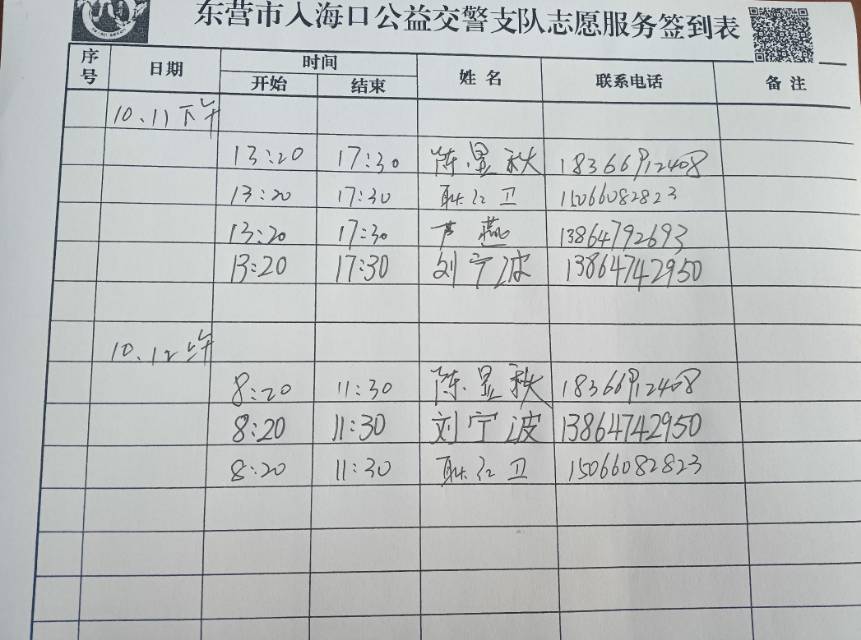 东营市入海口公益交警支队志愿服务签到表
序号 日期 时间 姓名 联系电话 备注
开始 结束
10.11下午
13:20 17:30 陈显秋 18366912408
13:20 17:30 耿红卫 15066082823
13:20 17:30 芦燕 13864792693
13:20 17:30 刘宁波 13864742950
10.12上午
8:20 11:30 陈显秋 18366912408
8:20 11:30 刘宁波 13864742950
8:20 11:30 耿红卫 15066082823